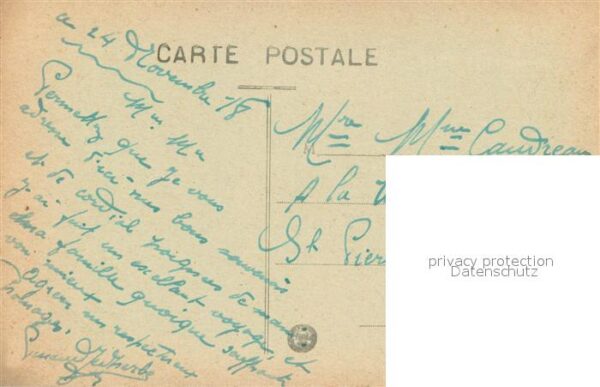 CARTE POSTALE
le 24 Novembre 18
Mr. Me
Permettez que je vous
adresse d'ici mes bons souvenirs
et de cordial
j'ai fait un excellent voyage, et
chère famille quoique souffrante
vont mieux
Agréez mes respectueux
hommages.
Mr Mme Caudreau
A la V
St Pier
privacy protection
Datenschutz